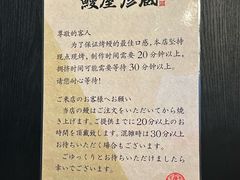 鰻屋彦蔵
尊敬的客人
为了保证烤鳗的最佳口感，本店坚持
现点现烤，制作时间需要 20 分钟以上，
拥挤时间可能需要等待 30 分钟以上。
请您耐心等待！
ご来店のお客様へお願い
当店の鰻はご注文をいただいてから焼
き上げます。ご提供までに 20分以上のお
時間を頂戴致します。混雑時は30分以上
お待ちいただく場合もございます。
ごゆっくりとお待ちいただけましたら
幸いでございます。